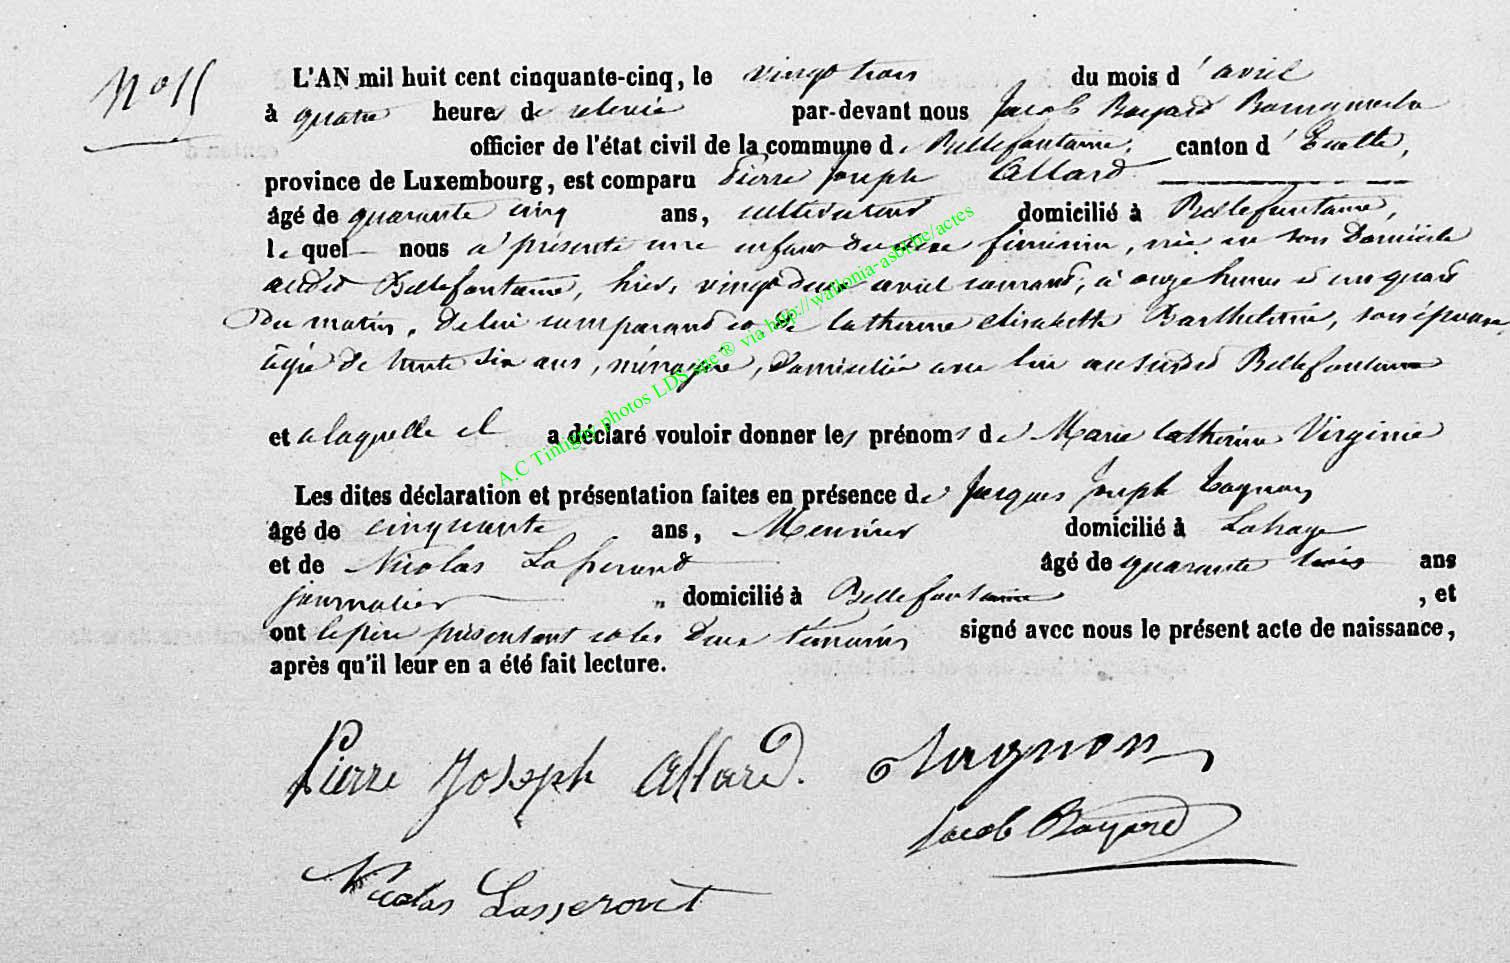 L'AN mil huit cent cinquante-cinq, le vingt trois du mois d'avril
à quatre heures de relevée par-devant nous Jacob Bayard Bourgmestre
officier de l'état civil de la commune de Bellefontaine, canton d'Etalle,
province de Luxembourg, est comparu Pierre Joseph Allard
âgé de quarante cinq ans, cultivateur domicilié à Bellefontaine,
lequel nous a présenté une enfant du sexe féminin, née en son domicile
audit Bellefontaine, hier, vingt deux avril courant, à onze heures et un quart
du matin, de lui comparant et de Catherine Elisabette Barthelemi, son épouse,
âgée de trente six ans, ménagère, domiciliée avec lui au susdit Bellefontaine
et a laquelle il a déclaré vouloir donner les prénoms de Marie Catherine Virginie
Les dites déclaration et présentation faites en présence de Jacques Joseph Tagnon
âgé de cinquante ans, Meunier domicilié à Lahage
et de Nicolas âgé de quarante trois ans
journalier, domicilié à Bellefontaine, et
ont le père présentant et les deux témoins signé avec nous le présent acte de naissance,
après qu'il leur en a été fait lecture.
Pierre Joseph Allard. Tagnon
Jacob Bayard
Nicolas
A.C Tintigny photos LDS site ® via http://wallonia-asbl.be/actes